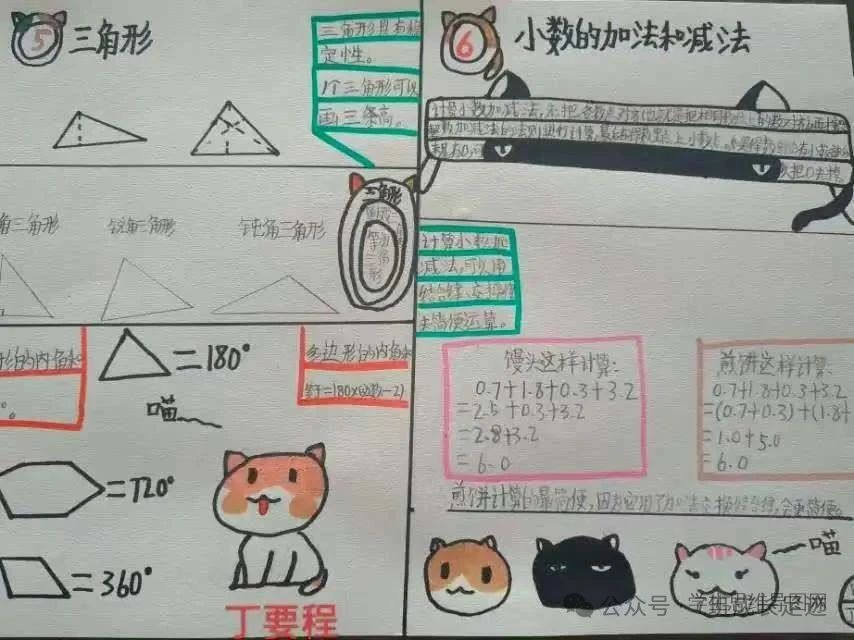 5 三角形
三角形具有稳
定性。
1个三角形可以
画三条高。
角三角形
锐角三角形
钝角三角形
三角形
等边
三角形
形的内角和
=180°
喵
多边形的内角和
等于=180×(边数-2)
=720°
=360°
丁要程
6 小数的加法和减法
计算小数加减法,先把
数加减法的法则进行计算,最后
把0去掉。
计算小数加
减法,可以用
结合律、交换律
去简便运算。
馒头这样计算:
0.7+1.8+0.3+3.2
=2.5+0.3+3.2
=2.8+3.2
=6.0
煎饼这样计算:
0.7+1.8+0.3+3.2
=(0.7+0.3)+(1.8+
=1.0+5.0
=6.0
煎饼计算的最简便,因为它用了加法交换结合律,会更简便。
喵
公众号